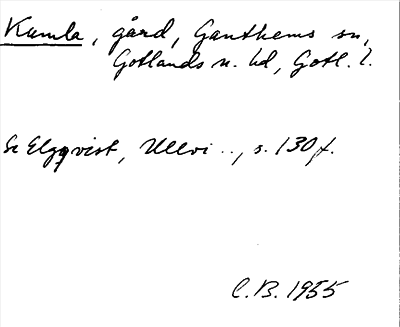 Kumla, gård, Ganthems sn,
Gotlands n. hd, Gotl. l.
Se Elgqvist, Ullvi .., s. 130 f.
C.B. 1955